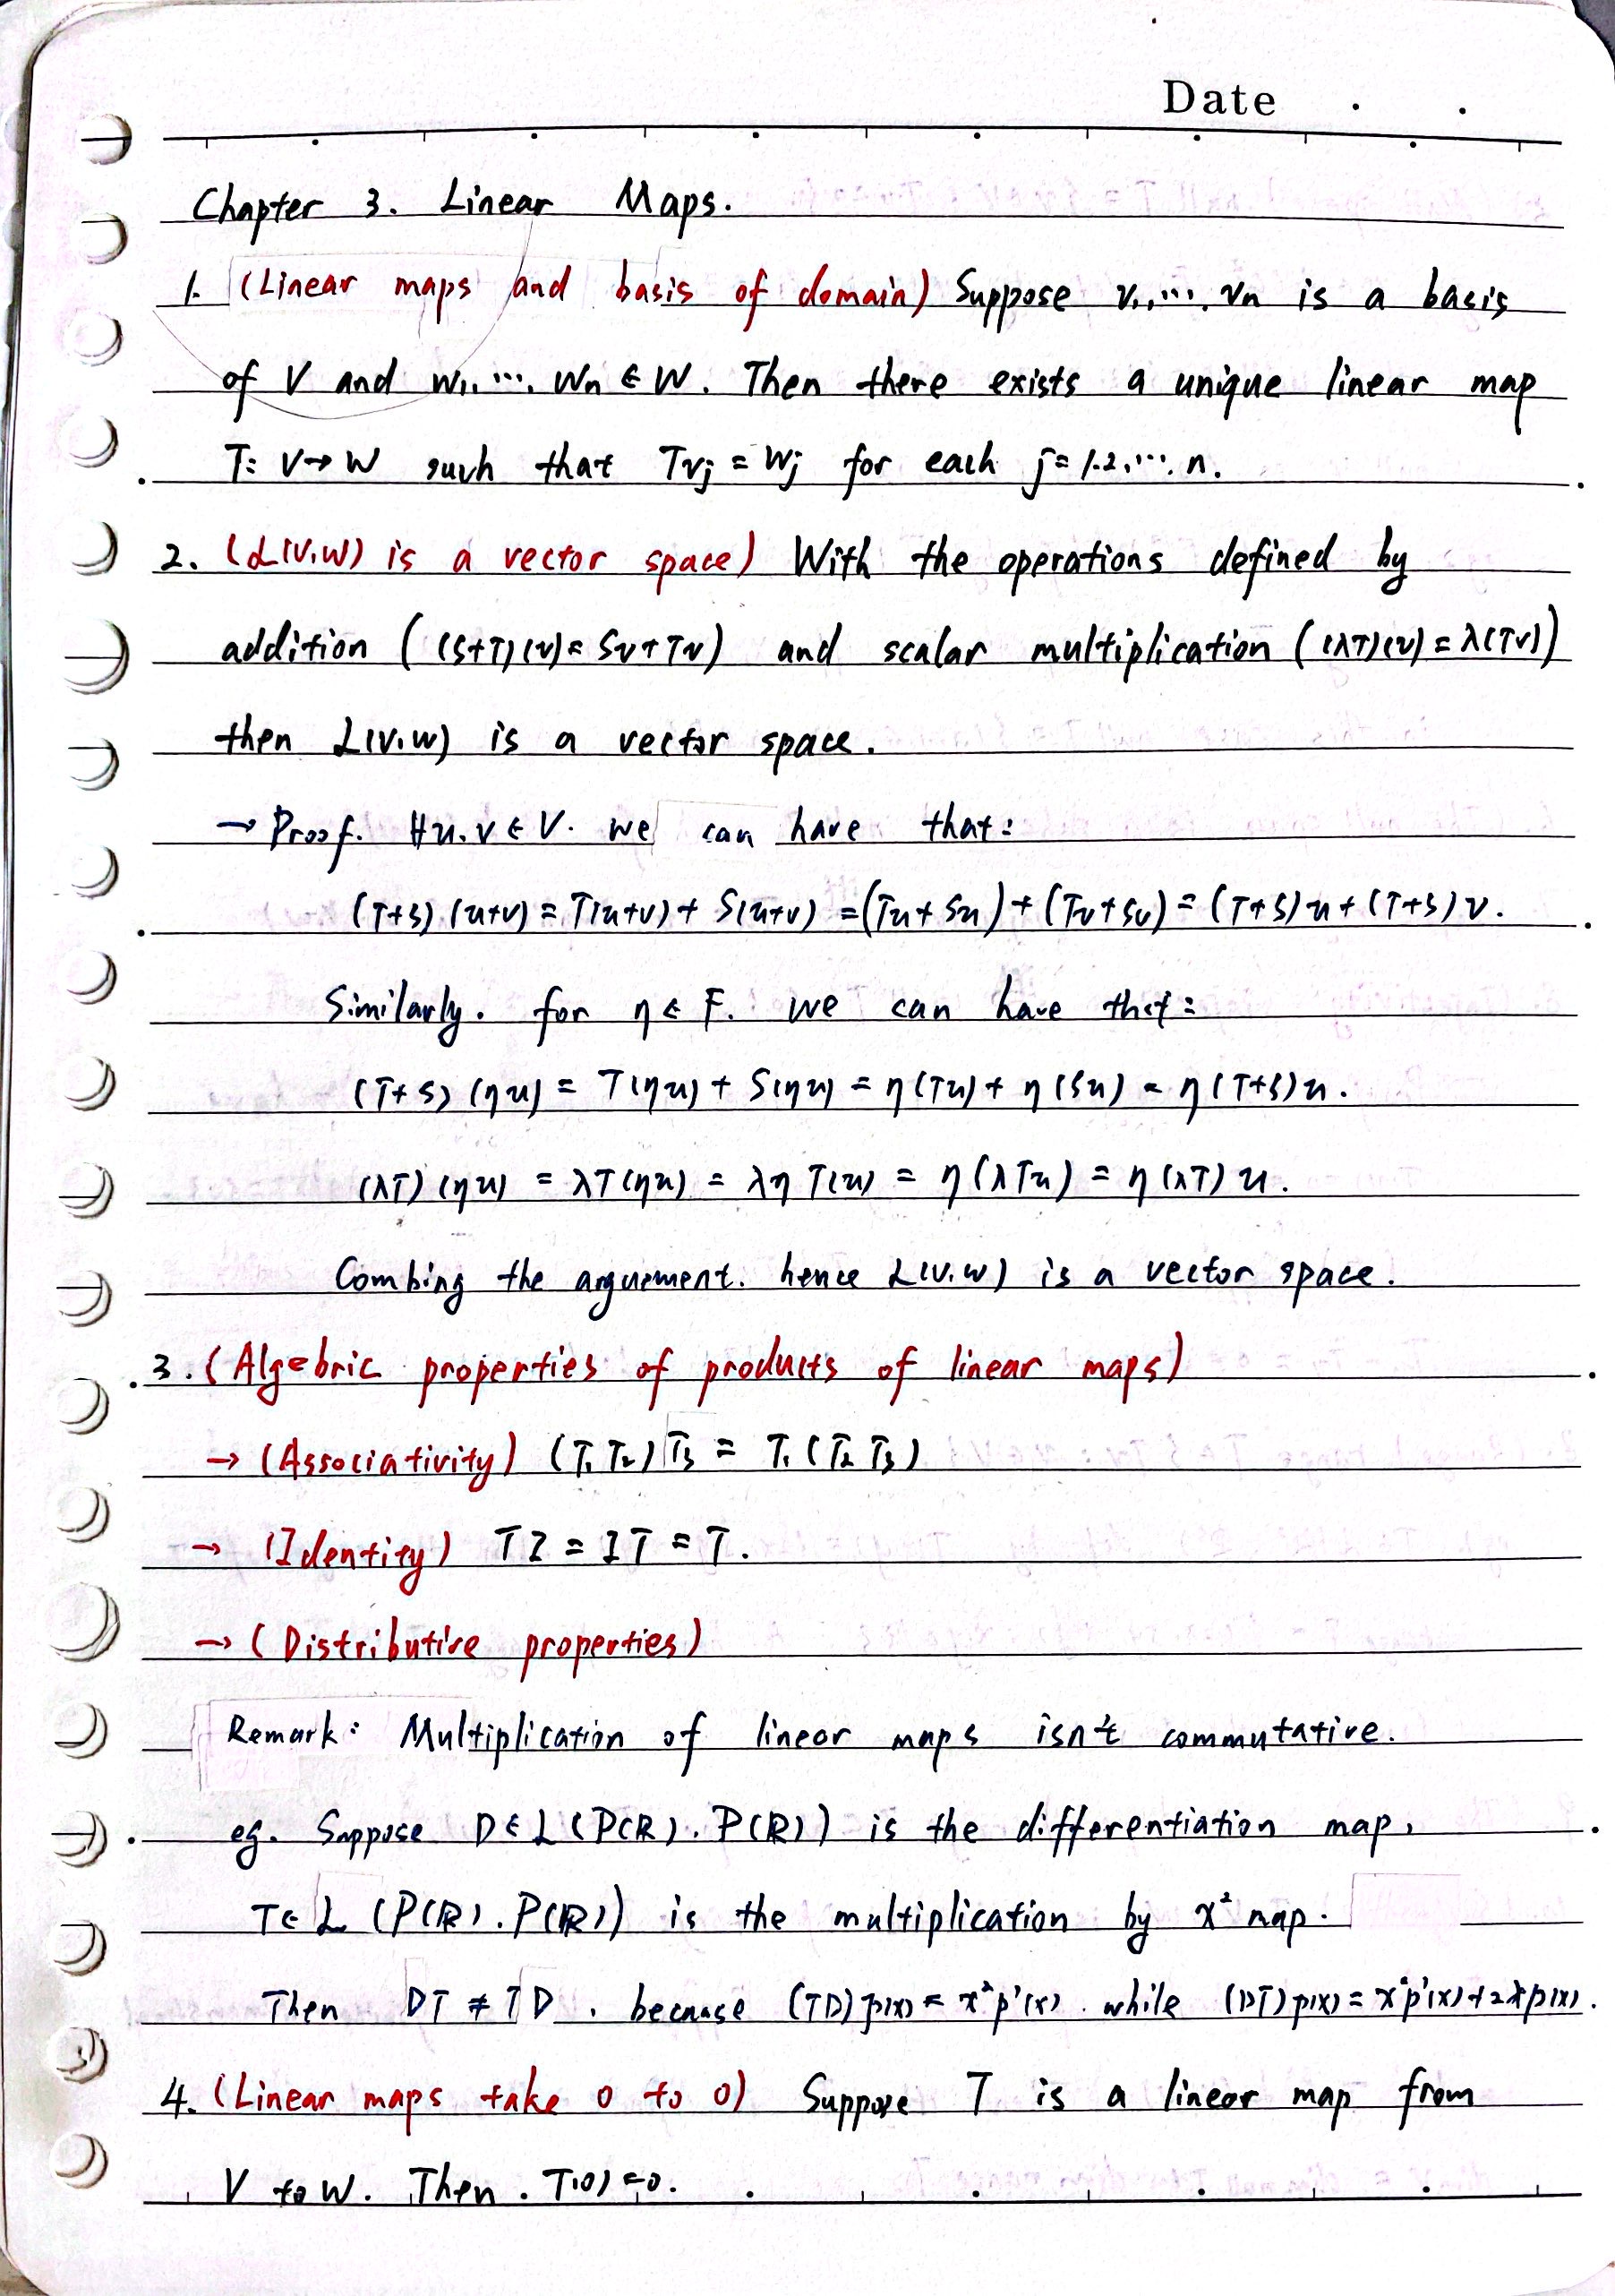 Date . .
Chapter 3. Linear Maps.
1. (Linear maps and basis of domain) Suppose v₁,…,vn is a basis
of V and w₁,…,wn ∈ W. Then there exists a unique linear map
T: V→W such that Tvj = wj for each j=1.2,…,n.
2. (L(V,W) is a vector space) With the operations defined by
addition ((S+T)(v)=Sv+Tv) and scalar multiplication ((λT)(v)=λ(Tv))
then L(V,W) is a vector space.
→ Proof. ∀u.v∈V. we can have that:
(T+S)(u+v) = T(u+v) + S(u+v) = (Tu+Su) + (Tv+Sv) = (T+S)u + (T+S)v.
Similarly. for η∈F. we can have that:
(T+S)(ηu) = T(ηu) + S(ηu) = η(Tu) + η(Su) = η(T+S)u.
(λT)(ηu) = λT(ηu) = λη T(u) = η(λTu) = η(λT)u.
Combing the arguement. hence L(V,W) is a vector space.
3. (Algebric properties of products of linear maps)
→ (Associativity) (T₁T₂)T₃ = T₁(T₂T₃)
→ (Identity) TI = IT = T.
→ (Distributive properties)
Remark: Multiplication of linear maps isn't commutative.
eg. Suppose D∈L(P(R).P(R)) is the differentiation map,
T∈L(P(R).P(R)) is the multiplication by x² map.
Then DT≠TD. because (TD)p(x)=x²p'(x). while (DT)p(x)=x²p'(x)+2xp(x).
4. (Linear maps take 0 to 0) Suppose T is a linear map from
V to W. Then. T(0)=0.